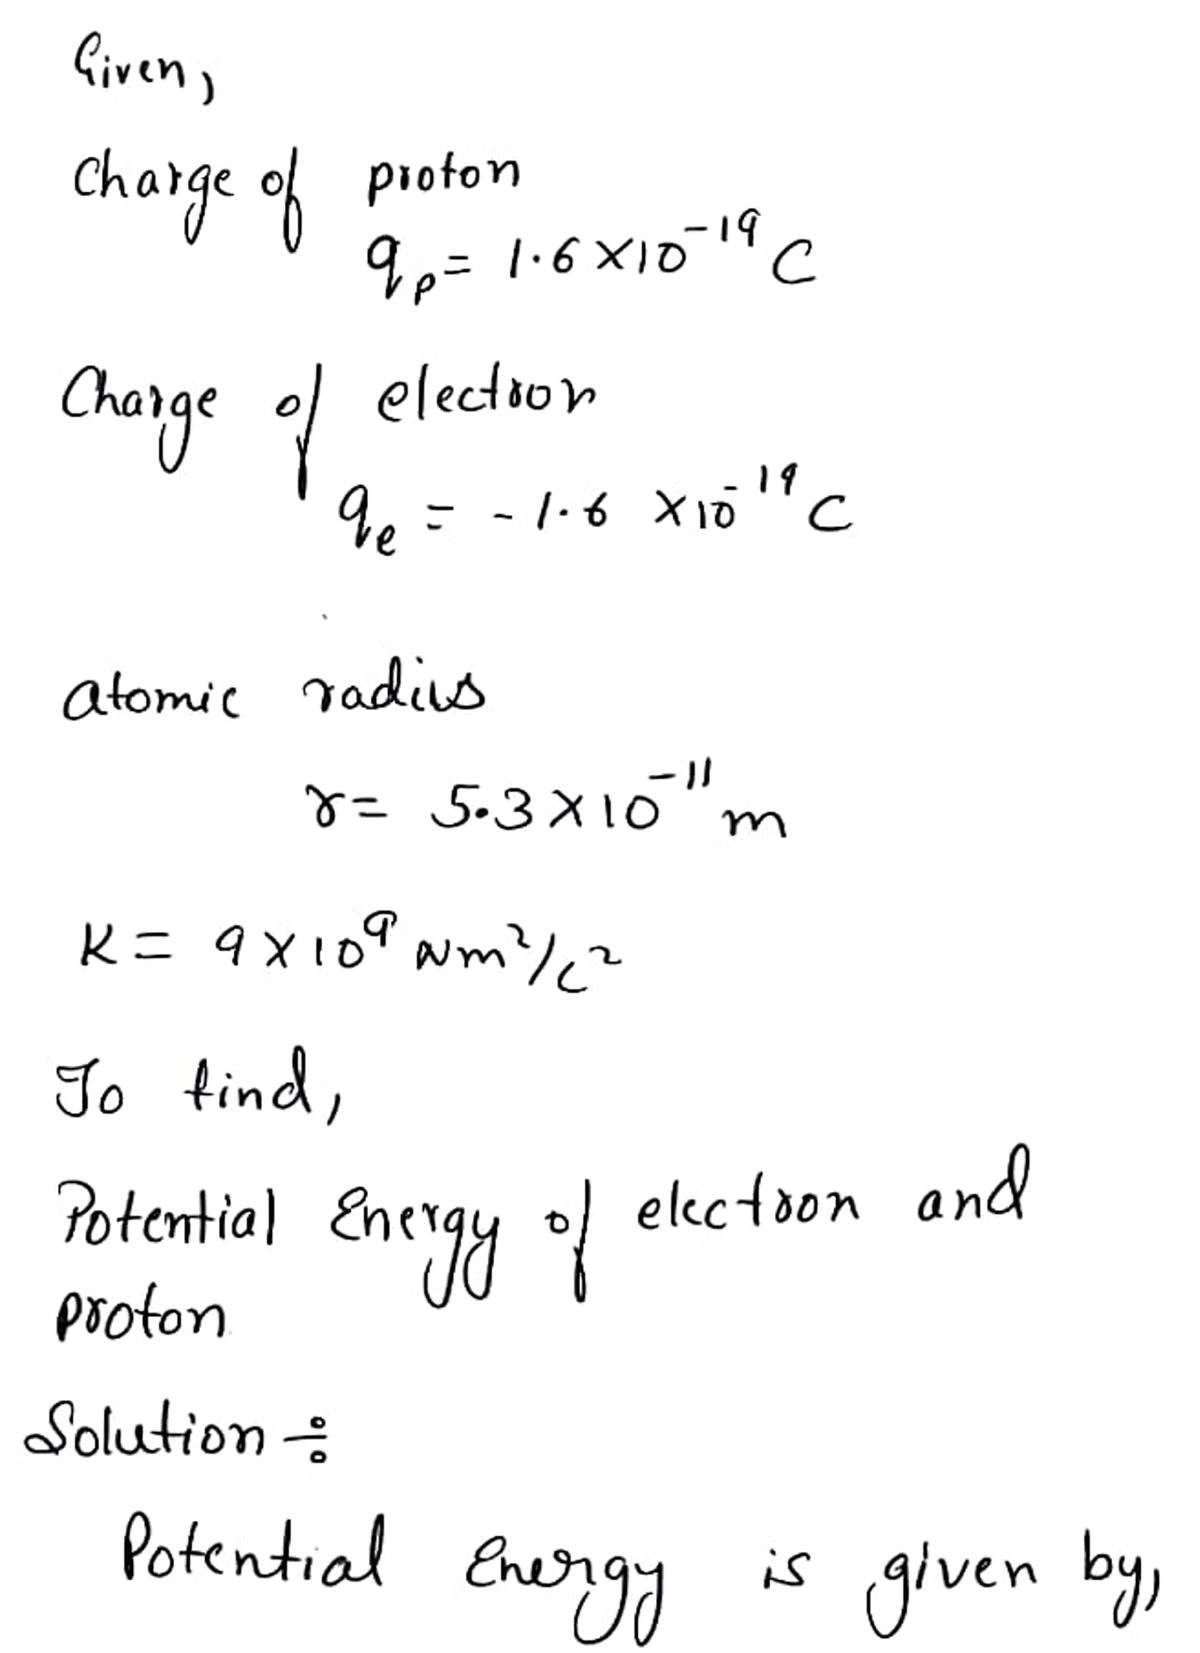 Given,
Charge of proton
qₚ = 1.6 × 10⁻¹⁹ C
Charge of electron
qₑ = - 1.6 × 10⁻¹⁹ C
atomic radius
r = 5.3 × 10⁻¹¹ m
K = 9 × 10⁹ Nm²/C²
To find,
Potential Energy of electron and
proton
Solution ÷
Potential Energy is given by,